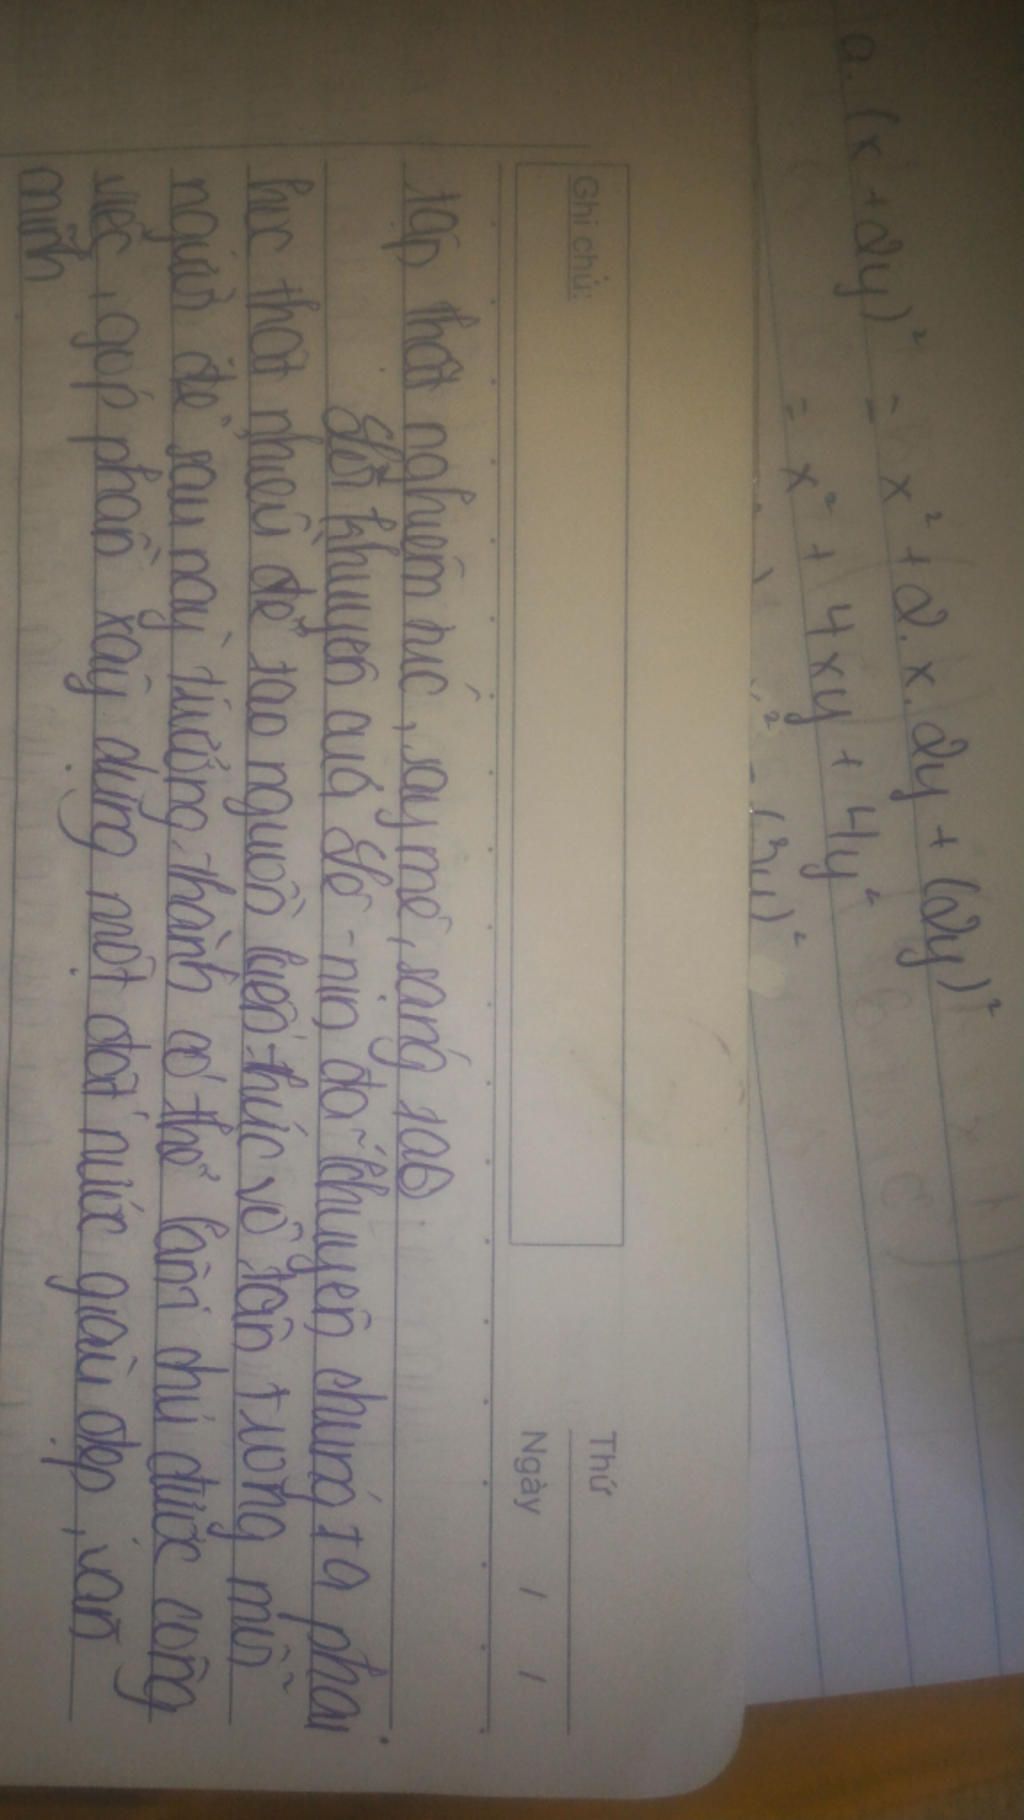 a. (x + 2y)² = x² + 2. x. 2y + (2y)²
= x² + 4xy + 4y²
Thứ
Ghi chú:
Ngày / /
tập thật nghiêm túc, say mê, sáng tạo
Lời khuyên của Lê-nin đã khuyên chúng ta phải
học thật nhiều để tạo nguồn kiến thức vô tận trong mỗi
người để sau này trưởng thành có thể làm chủ được công
việc, góp phần xây dựng một đất nước giàu đẹp, văn
minh